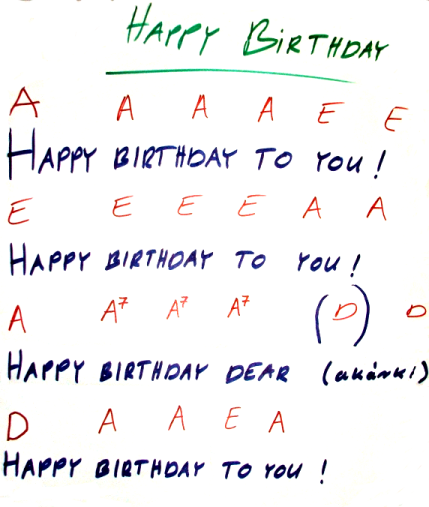 HAPPY BIRTHDAY
A A A A E E
HAPPY BIRTHDAY TO YOU!
E E E E A A
HAPPY BIRTHDAY TO YOU!
A A7 A7 A7 (D) D
HAPPY BIRTHDAY DEAR (akárki)
D A A E A
HAPPY BIRTHDAY TO YOU!